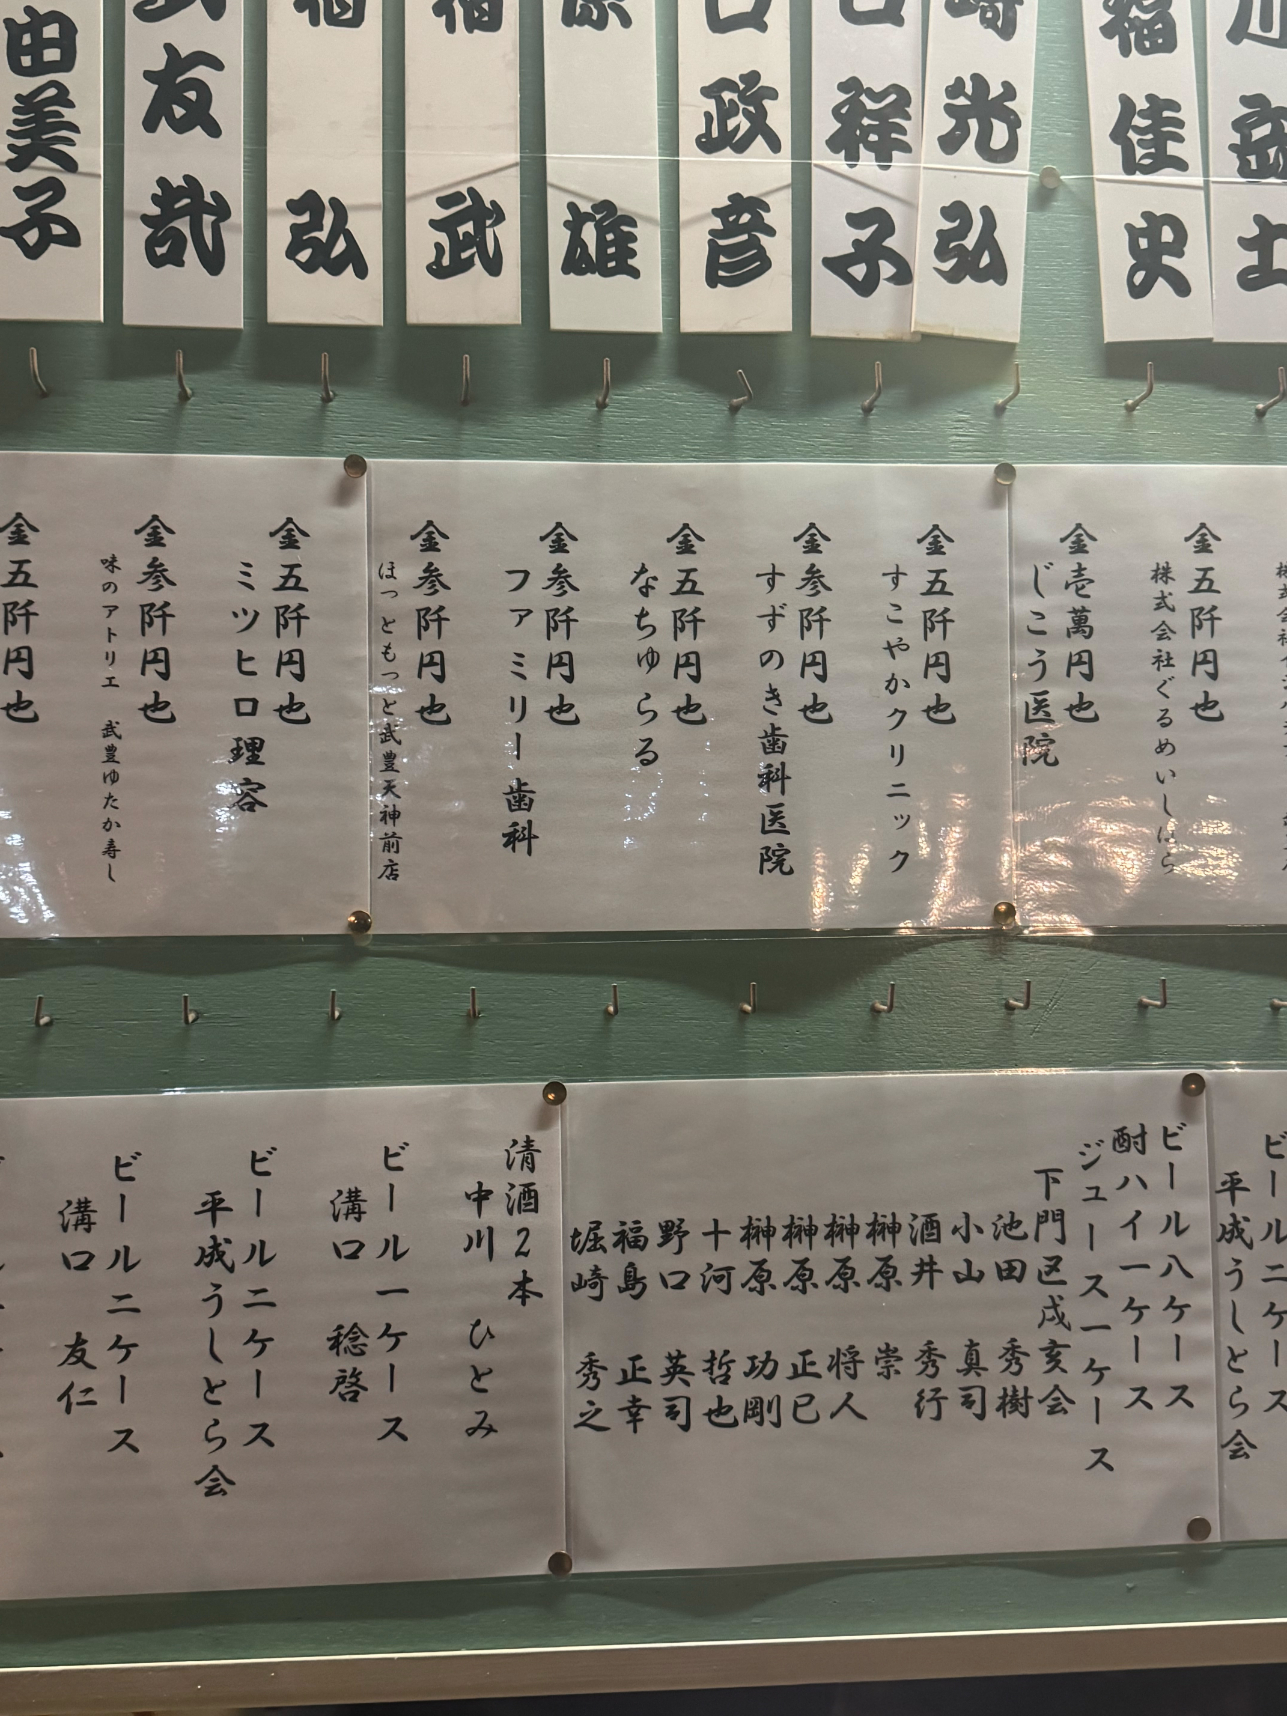 士
佳史
光弘
祥子
政彦
雄
武
弘
友哉
由美子
金五阡円也
株式会社ぐるめいしはら
金壱萬円也
じこう医院
金五阡円也
すこやかクリニック
金参阡円也
すずのき歯科医院
金五阡円也
なちゅらる
金参阡円也
ファミリー歯科
金参阡円也
ほっともっと武豊天神前店
金五阡円也
ミツヒロ理容
金参阡円也
味のアトリエ 武豊ゆたか寿し
金五阡円也
ビールニケース
平成うしとら会
ビール八ケース
酎ハイ一ケース
ジュース一ケース
下門区戌亥会
池田 秀樹
小山 真司
酒井 秀行
榊原 崇
榊原 将人
榊原 正巳
榊原 功剛
十河 哲也
野口 英司
福島 正幸
堀崎 秀之
清酒2本
中川 ひとみ
ビール一ケース
溝口 稔啓
ビールニケース
平成うしとら会
ビールニケース
溝口 友仁